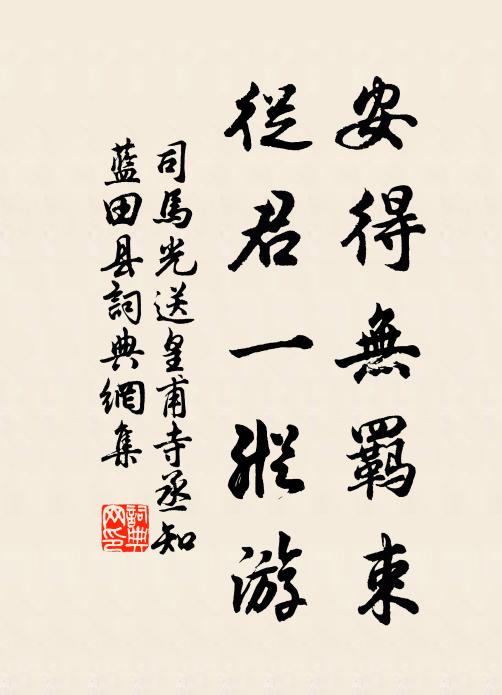 安得無羈束
從君一縱游
司馬光送皇甫寺丞知
藍田县詞典網集
詞典
网印